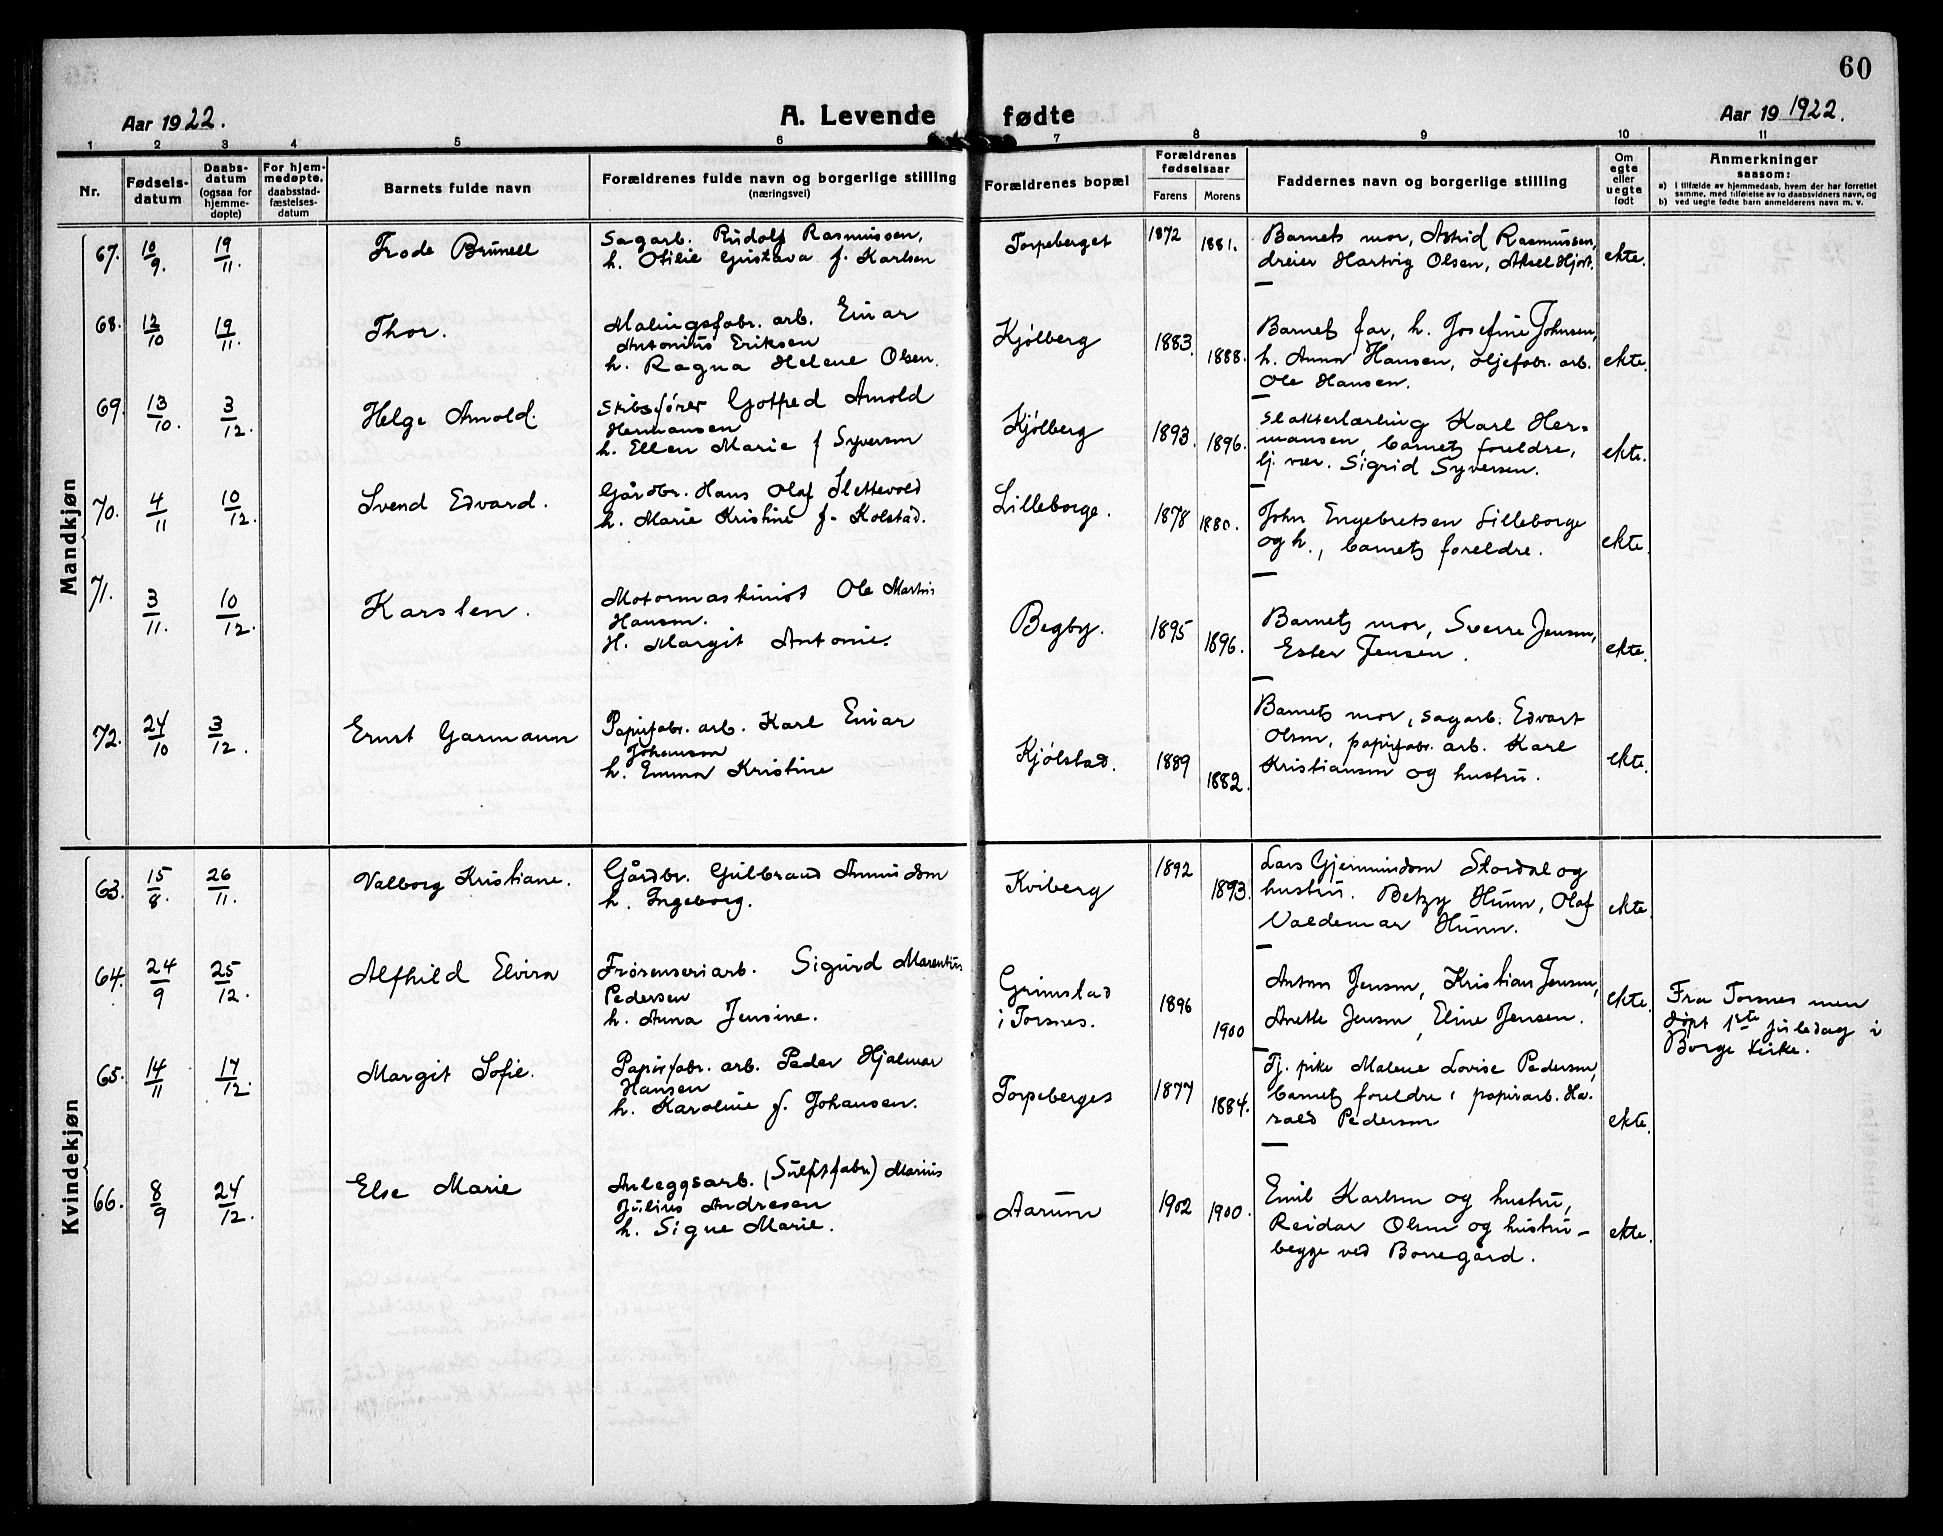 60
Aar 1922.
A. Levende fødte
Aar 19 1922.
1 2 3 4 5 6 7 8 9 10 11
Nr.
Fødsels-
datum
Daabs-
datum
(ogsaa for
hjemme-
døpte)
For hjem-
medøpte.
daabsstad-
fæstelses-
datum
Barnets fulde navn
Forældrenes fulde navn og borgerlige stilling
(næringsvei)
Forældrenes bopæl
Forældrenes
fødselsaar
Farens Morens
Faddernes navn og borgerlige stilling
Om
egte
eller
uegte
født
Anmerkninger
saasom:
a) i tilfælde av hjemmedaab, hvem der har forrettet
samme, med tilføielse av to daabsvidners navn, og
b) ved uegte fødte barn anmelderens navn m. v.
Mandkjøn
67. 10/9. 19/11. Frode Brunell
Sagarb. Rudolf Rasmussen,
h. Otilie Gustava f. Karlsen
Torpeberget 1872 1881.
Barnets mor, Astrid Rasmussen,
dreier Hartvig Olsen, Aksel Hjort.
ekte.
68. 12/10 19/11. Thor.
Malingsfabr. arb. Einar
Antonius Eriksen
h. Ragna Helene Olsen.
Kjølberg 1883. 1888.
Barnets far, h. Josefine Johnsen,
h. Anna Hansen, oljefabr. arb.
Ole Hansen.
ekte.
69. 13/10. 3/12. Helge Arnold.
Skibsfører Gotfred Arnold
Hermansen
h. Ellen Marie f Syversen
Kjølberg 1893. 1896.
Slakterlærling Karl Her-
mansen, barnets foreldre,
Sigrid Syversen.
ekte.
70. 4/11 10/12. Svend Edvard.
Gårdbr. Hans Olaf Slettevold
h. Marie Kristine f. Kolstad.
Lilleborge. 1878 1880.
John Engebretsen Lilleborge
og h., barnets foreldre.
ekte.
71. 3/11. 10/12. Karsten.
Motormaskinist Ole Martin
Hansen.
H. Margit Antonie.
Begby. 1895 1896.
Barnets mor, Sverre Jensen,
Ester Jensen.
ekte.
72. 24/10 3/12. Ernst Garmann
Papirfabr. arb. Karl Einar
Johansen
h. Emma Kristine
Kjølstad. 1889 1882.
Barnets mor, sagarb. Edvart
Olsen, papirfabr. arb. Karl
Kristiansen og hustru.
ekte.
Kvindekjøn
63. 15/8. 26/11. Valborg Kristiane.
Gårdbr. Gulbrand
h. Ingeborg.
Kviberg 1892 1893.
Lars Stordal og
hustru. Betzy Hunn, Olaf
Valdemar Hunn.
ekte.
64. 24/9 25/12. Alfhild Elvira
Sigurd Marentius
Pedersen
h. Anna Jensine.
Grimstad
i Torsnes. 1896 1900
Anton Jensen, Kristian Jensen,
Anette Jensen, Eline Jensen.
ekte.
Fra Torsnes men
døpt 1ste juledag i
Borge kirke.
65. 14/11 17/12. Margit Sofie.
Papirfabr. arb. Peder Hjalmar
Hansen
h. Karoline f. Johansen.
Torpeberget 1877 1884.
Tj. pike Malene Lovise Pedersen,
barnets foreldre, papirarb. Ha-
rald Pedersen
ekte.
66. 8/9 24/12. Else Marie
Anleggsarb. (Sulfitfabr.) Marius
Julius Andresen
h. Signe Marie.
Aarum 1902 1900.
Emil Karlsen og hustru,
Reidar Olsen og hustru -
begge ved Borregård.
ekte.